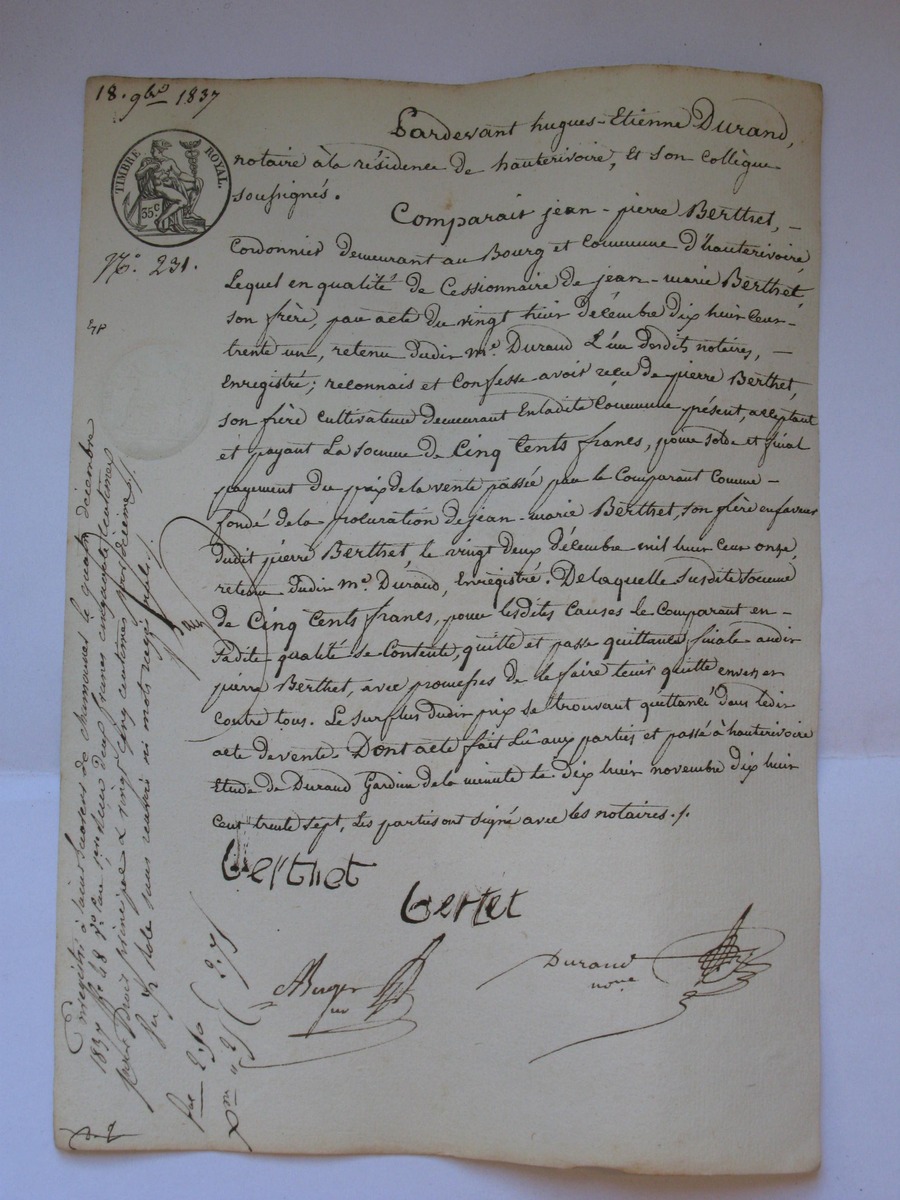 18. 9bre 1837
TIMBRE ROYAL.
35 c
N.° 231.
Exp
Pardevant hugues-Etienne Durand,
notaire à la résidence de hauterivoire, Et son collègue
soussignés.
Comparait jean-pierre Berthet, -
Cordonnier demeurant au Bourg et Commune d'hauterivoire,
Lequel en qualité de Cessionnaire de jean-marie Berthet
son frère, par acte du vingt huit décembre dix huit cent
trente un, retenu dudit me. Durand L'un desdits notaires, -
Enregistré; reconnait et Confesse avoir reçu de pierre Berthet,
son frère cultivateur demeurant Enladite Commune présent, acceptant
et payant La somme de Cinq Cents francs, pour solde et final
payement du prix de la vente passée par le Comparant Comme -
fondé de la procuration de jean-marie Berthet, son frère en faveur
dudit pierre Berthet, le vingt deux décembre mil huit cent onze,
retenu dudit me. Durand, Enregistré. De laquelle Susdite Somme
de Cinq Cents francs, pour lesdites Causes le Comparant en -
sadite qualité se Contente, quitte et passe quittance finale audit
pierre Berthet, avec promesses de le faire tenir quitte envers et
contre tous. Le surplus dudit prix se trouvant quittancé dans ledit
acte de vente. Dont acte fait Lû aux parties et passé à hauterivoire
Etude de Durand Gardien de la minute Le Dix huit novembre dix huit
cent trente sept, Les parties ont signé avec les notaires./.
Berthet
Bertet
Durand
nore
Enregistré à St Laurent de chamousset le quatre décembre
1837 fo 48 Vo Case Reçu deux francs cinquante centimes
pour Droit principal & vingt Cinq centimes pour décime./.
rôle sans renvoi ni mots rayés nuls./.
2,50